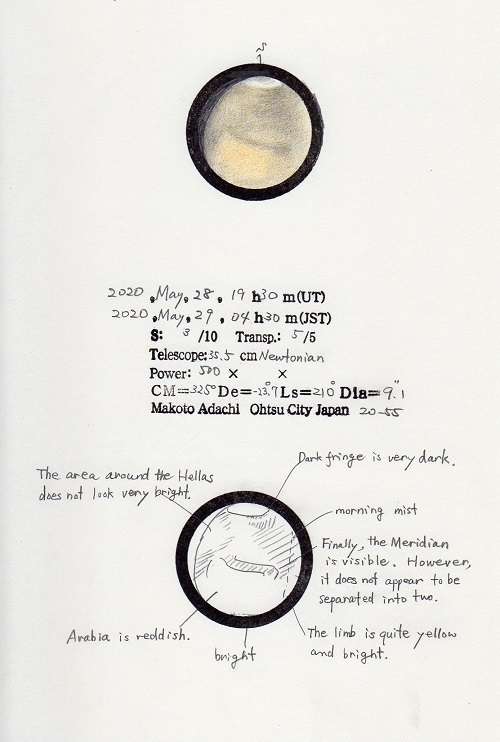 S
2020, May, 28, 19 h30 m(UT)
2020, May, 29, 04 h30 m(JST)
S: 3 /10 Transp.: 5/5
Telescope:35.5 cm Newtonian
Power: 500 × ×
CM=325° De=-13°.7 Ls=210° Dia=9".1
Makoto Adachi Ohtsu City Japan 20-55
Dark fringe is very dark.
The area around the Hellas
does not look very bright.
morning mist
Finally, the Meridian
is visible. However,
it does not appear to be
separated into two.
Arabia is reddish.
bright
The limb is quite yellow
and bright.